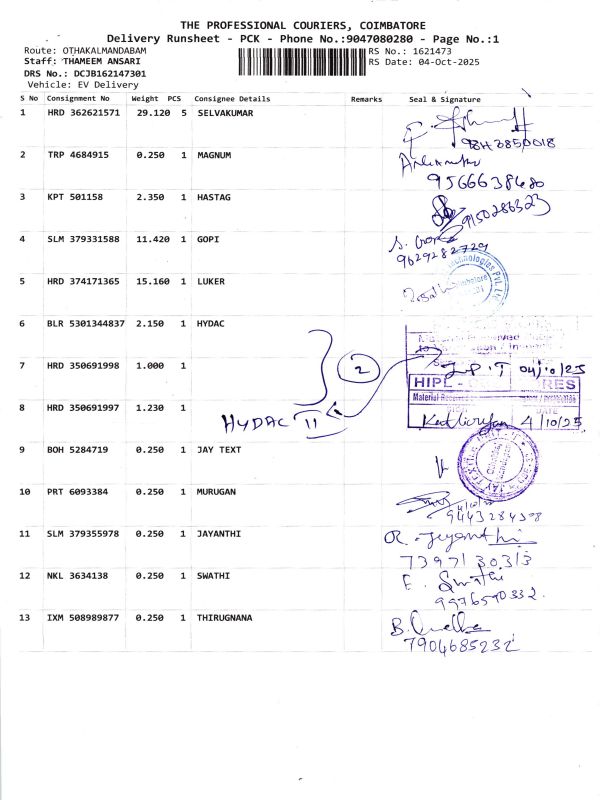 THE PROFESSIONAL COURIERS, COIMBATORE
Delivery Runsheet - PCK - Phone No.:9047080280 - Page No.:1
Route: OTHAKALMANDABAM RS No.: 1621473
Staff: THAMEEM ANSARI RS Date: 04-Oct-2025
DRS No.: DCJB162147301
Vehicle: EV Delivery
S No Consignment No Weight PCS Consignee Details Remarks Seal & Signature
1 HRD 362621571 29.120 5 SELVAKUMAR
2 TRP 4684915 0.250 1 MAGNUM
3 KPT 501158 2.350 1 HASTAG
9150286323
4 SLM 379331588 11.420 1 GOPI
9629282729
5 HRD 374171365 15.160 1 LUKER
6 BLR 5301344837 2.150 1 HYDAC
7 HRD 350691998 1.000 1
2
04/10/25
HIPL -
Material Received
DATE
8 HRD 350691997 1.230 1
HYDAC II
4/10/25
9 BOH 5284719 0.250 1 JAY TEXT
10 PRT 6093384 0.250 1 MURUGAN
11 SLM 379355978 0.250 1 JAYANTHI
R. Jeyanthi
7397130313
12 NKL 3634138 0.250 1 SWATHI
E. Swathi
9976590332.
13 IXM 508989877 0.250 1 THIRUGNANA
7904685232